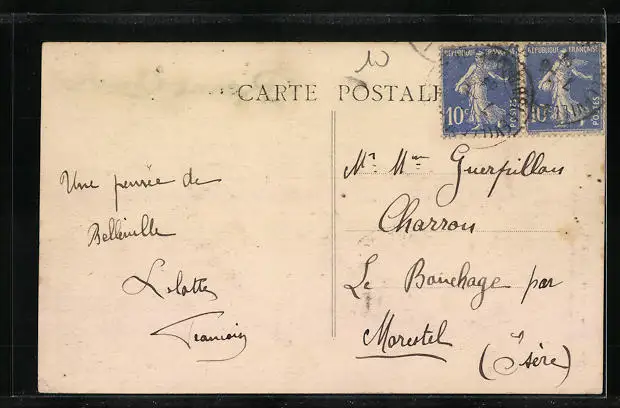 10
RÉPUBLIQUE FRANÇAISE
10c
POSTES
RÉPUBLIQUE FRANÇAISE
10c
POSTES
CARTE POSTALE
Une pensée de
Belleville
Lolotte
François
Mr. Mme Guerpillon
Charron
Le Bouchage par
Morestel
(Isère)